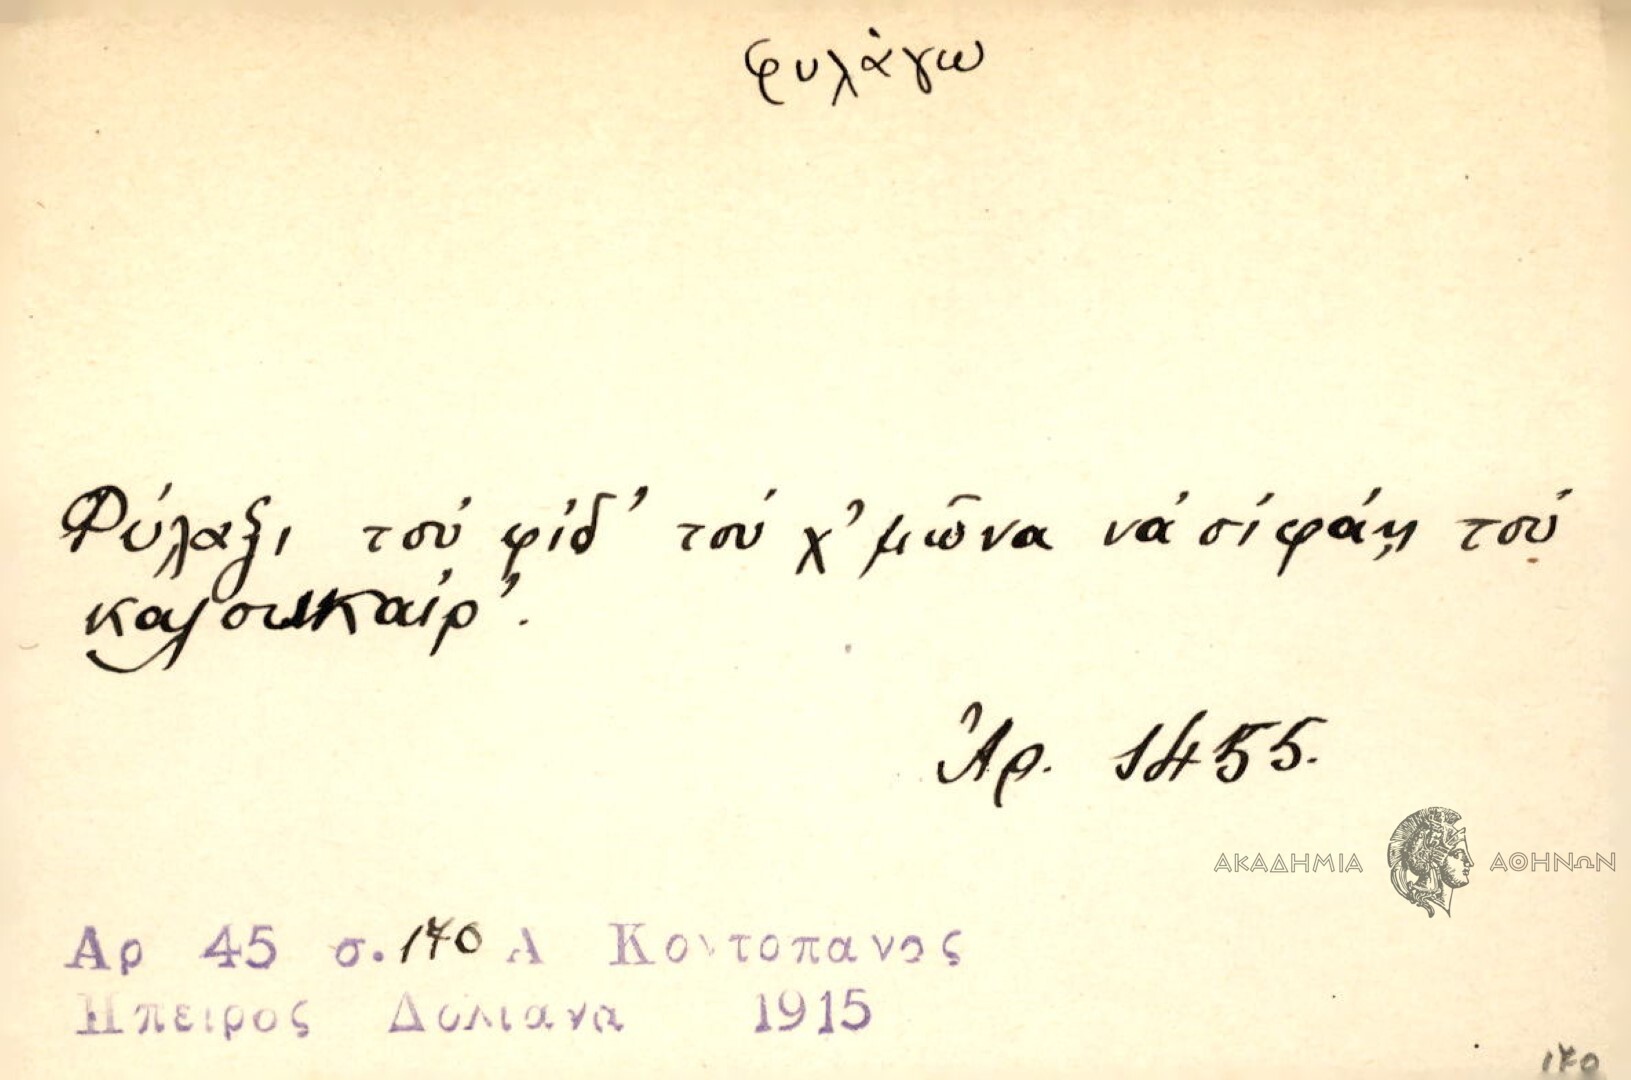 φυλάγω
Φύλαξι τού φίδ' τού χ'μῶνα νά σί φάῃ τού
καλουκαίρ'.
Ἀρ. 1455.
ΑΚΑΔΗΜΙΑ ΑΘΗΝΩΝ
Αρ 45 σ. 170 Α Κοντοπανος
Ηπειρος Δολιανα 1915
170